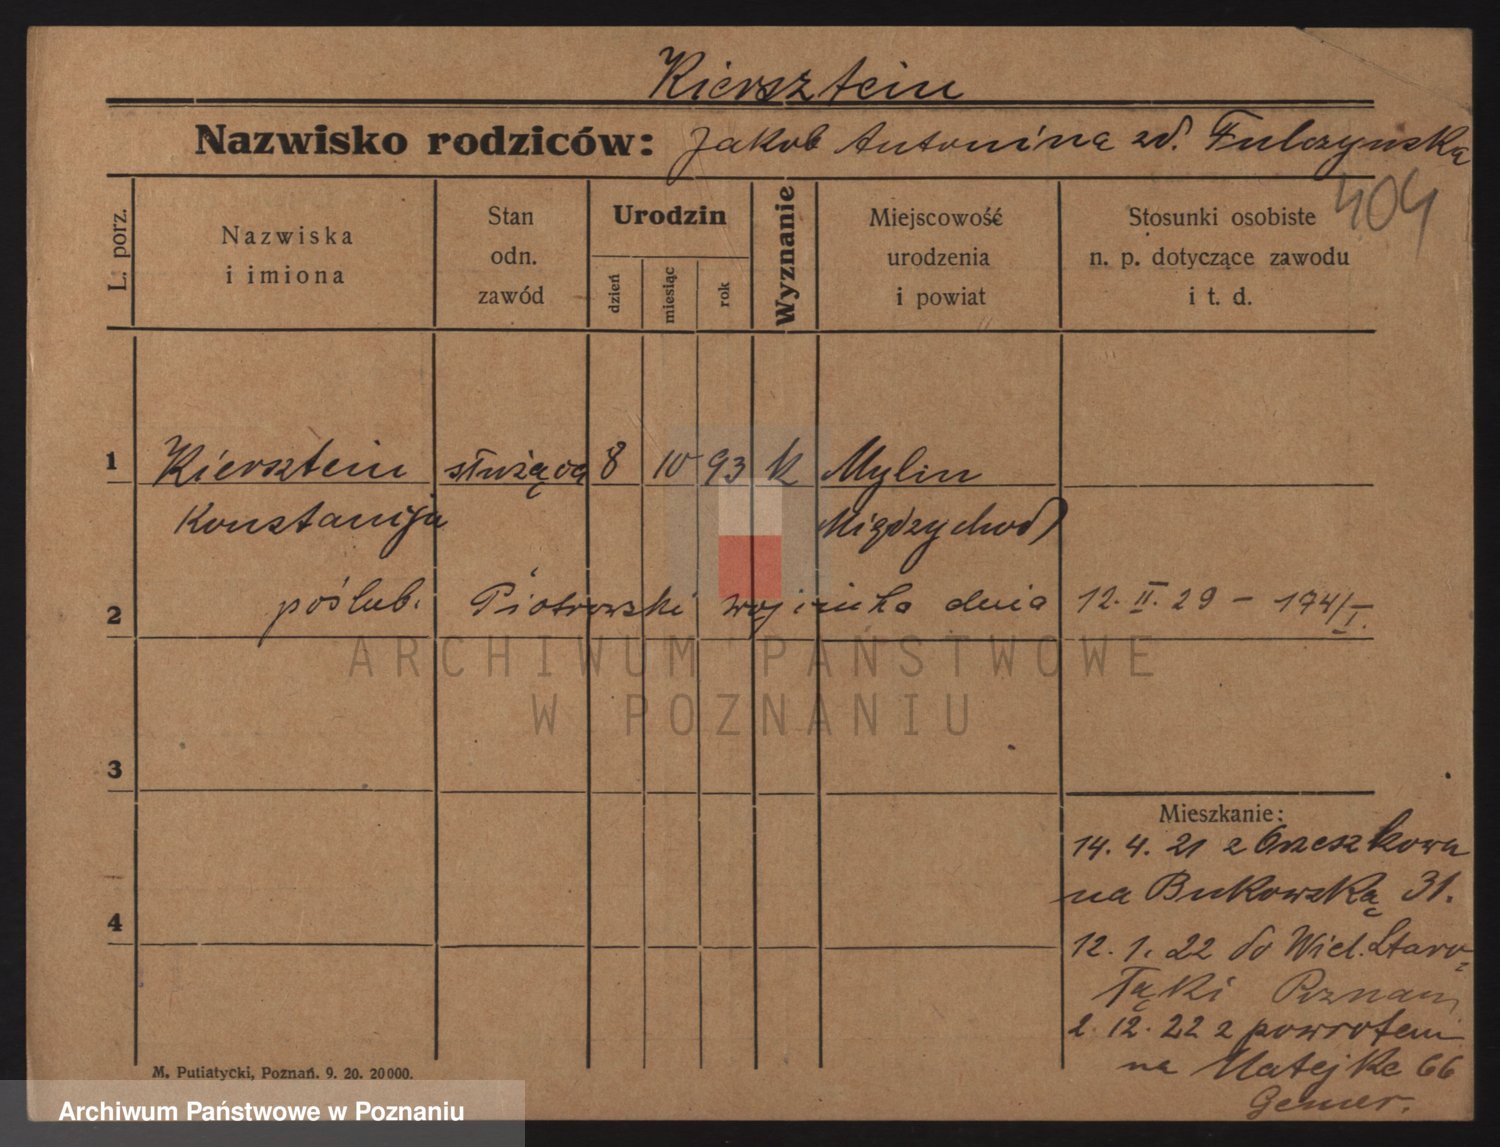 Kiersztein
Nazwisko rodziców: Jakob Antonina zd. Fulczynska
404
L. porz.
Nazwiska i imiona
Stan odn. zawód
Urodzin
dzień
miesiąc
rok
Wyznanie
Miejscowość urodzenia i powiat
Stosunki osobiste n. p. dotyczące zawodu i t. d.
1 Kiersztein służąca 8 10 93 k Mylin
Konstancja Międzychod
2 poślub. Piotrowski dnia 12. II. 29 - 174/I.
3
4
Mieszkanie:
14. 4. 21 z Orzeszkowa
na Bukowską 31.
12. 1. 22 do Wiel. Staro-
łąki Poznań
2. 12. 22 z powrotem
na Matejki 66
M. Putiatycki, Poznań. 9. 20. 20000.
ARCHIWUM PAŃSTWOWE
W POZNANIU
Archiwum Państwowe w Poznaniu